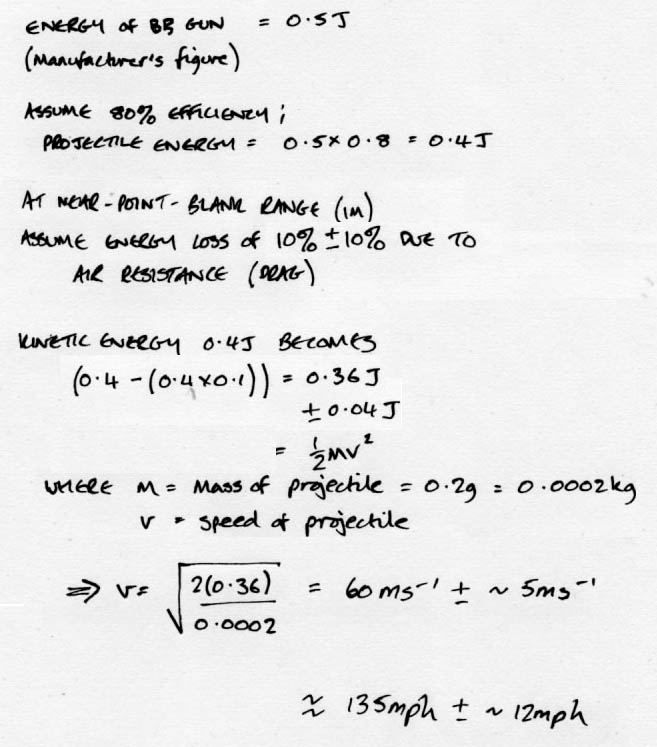 ENERGY of BB GUN = 0.5 J
(Manufacturer's figure)
ASSUME 80% EFFICIENCY;
PROJECTILE ENERGY = 0.5 x 0.8 = 0.4 J
AT NEAR-POINT-BLANK RANGE (1M)
ASSUME ENERGY LOSS of 10% ± 10% DUE TO
AIR RESISTANCE (DRAG)
KINETIC ENERGY 0.4J BECOMES
(0.4 - (0.4 x 0.1)) = 0.36 J
± 0.04 J
= ½mv²
WHERE M = Mass of projectile = 0.2g = 0.0002 kg
v = speed of projectile
⇒ v = √(2(0.36)/0.0002) = 60 ms⁻¹ ± ~ 5ms⁻¹
≈ 135mph ± ~ 12mph